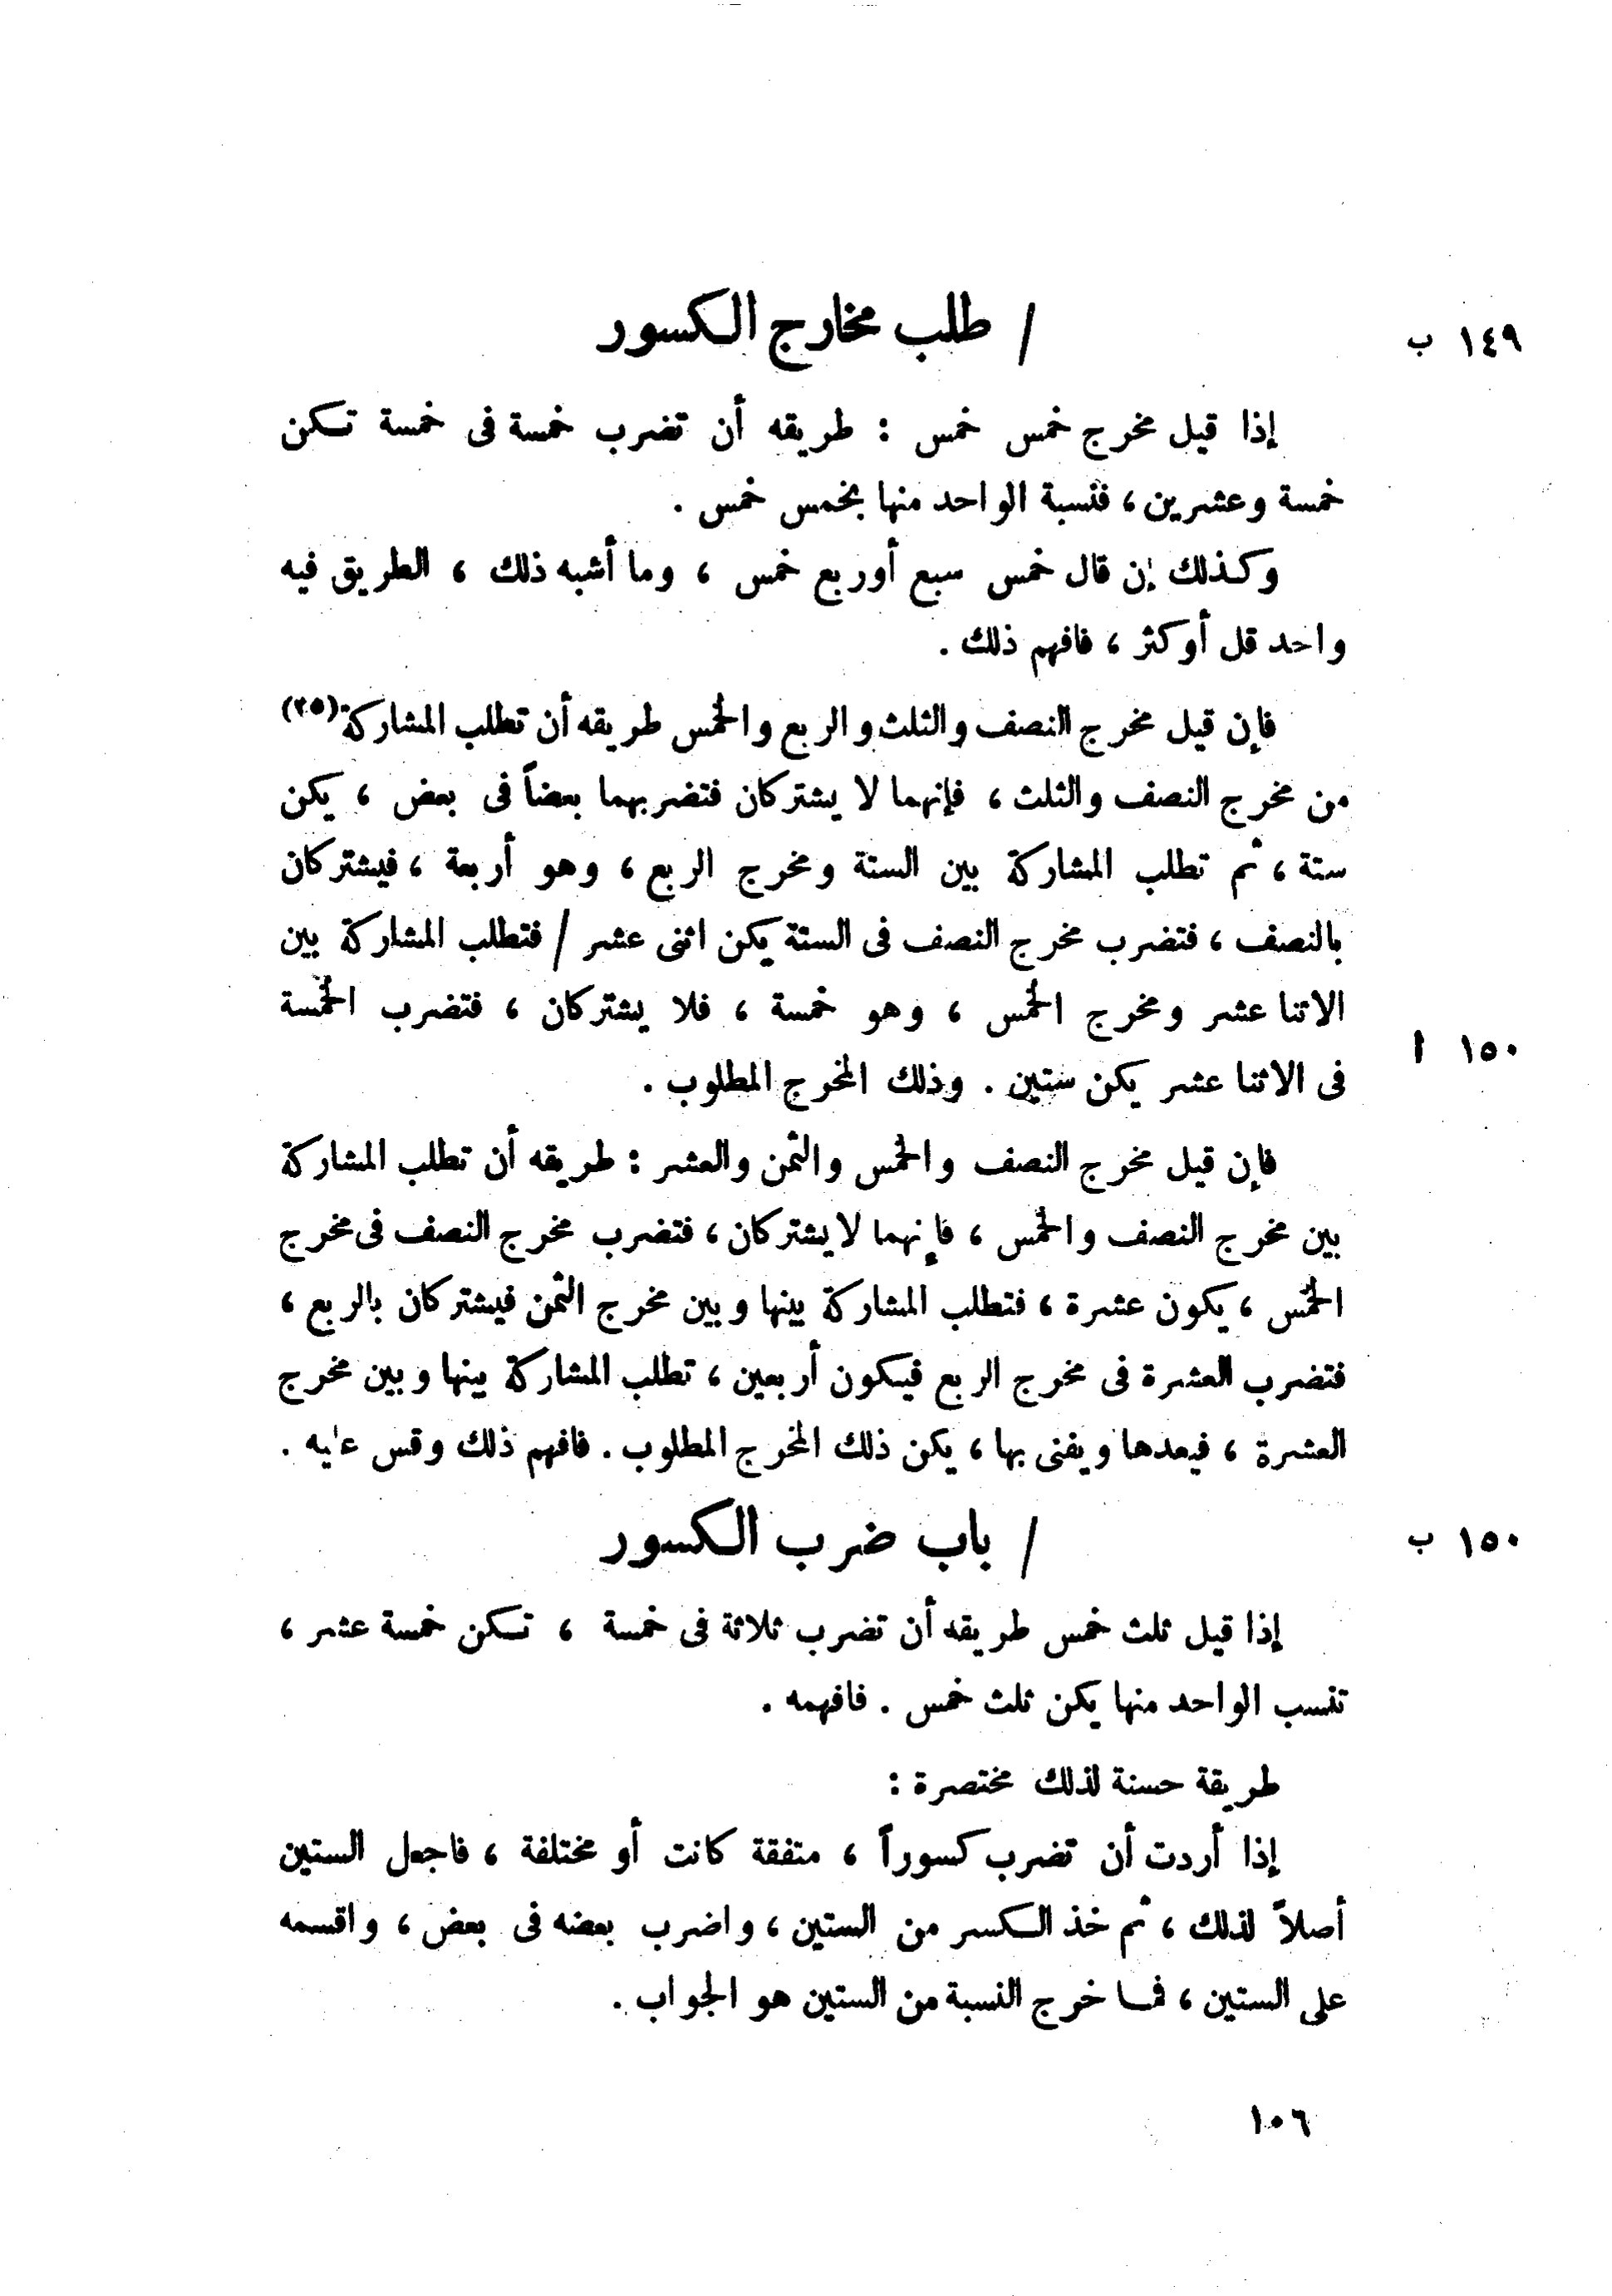 ١٤٩ ب
/ طلب مخارج الكسور
إذا قيل مخرج خمس خمس : طريقه أن تضرب خمسة فى خمسة تكن
خمسة وعشرين ، فنسبة الواحد منها بخمس خمس .
وكذلك إن قال خمس سبع أوربع خمس ، وما أشبه ذلك ، الطريق فيه
واحد قل أوكثر ، فافهم ذلك .
فإن قيل مخرج النصف والثلث والربع والخمس طريقه أن تطلب المشاركة(٢٥)
من مخرج النصف والثلث ، فإنهما لا يشتركان فتضربهما بعضاً فى بعض ، يكن
ستة ، ثم تطلب المشاركة بين الستة ومخرج الربع ، وهو أربعة ، فيشتركان
بالنصف ، فتضرب مخرج النصف فى الستة يكن اثنى عشر / فتطلب المشاركة بين
الاثنا عشر ومخرج الخمس ، وهو خمسة ، فلا يشتركان ، فتضرب الخمسة
١٥٠ ا
فى الاثنا عشر يكن ستين . وذلك المخرج المطلوب .
فإن قيل مخرج النصف والخمس والثمن والعشر : طريقه أن تطلب المشاركة
بين مخرج النصف والخمس ، فإنهما لا يشتركان ، فتضرب مخرج النصف فى مخرج
الخمس ، يكون عشرة ، فتطلب المشاركة بينها وبين مخرج الثمن فيشتركان بالربع ،
فتضرب العشرة فى مخرج الربع فيكون أربعين ، تطلب المشاركة بينها وبين مخرج
العشرة ، فيعدها ويفنى بها ، يكن ذلك المخرج المطلوب . فافهم ذلك وقس عليه .
١٥٠ ب
/ باب ضرب الكسور
إذا قيل ثلث خمس طريقه أن تضرب ثلاثة فى خمسة ، تكن خمسة عشر ،
تنسب الواحد منها يكن ثلث خمس . فافهمه .
طريقة حسنة لذلك مختصرة :
إذا أردت أن تضرب كسوراً ، متفقة كانت أو مختلفة ، فاجعل الستين
أصلاً لذلك ، ثم خذ الكسر من الستين ، واضرب بعضه فى بعض ، واقسمه
على الستين ، فما خرج النسبة من الستين هو الجواب .
١٠٦